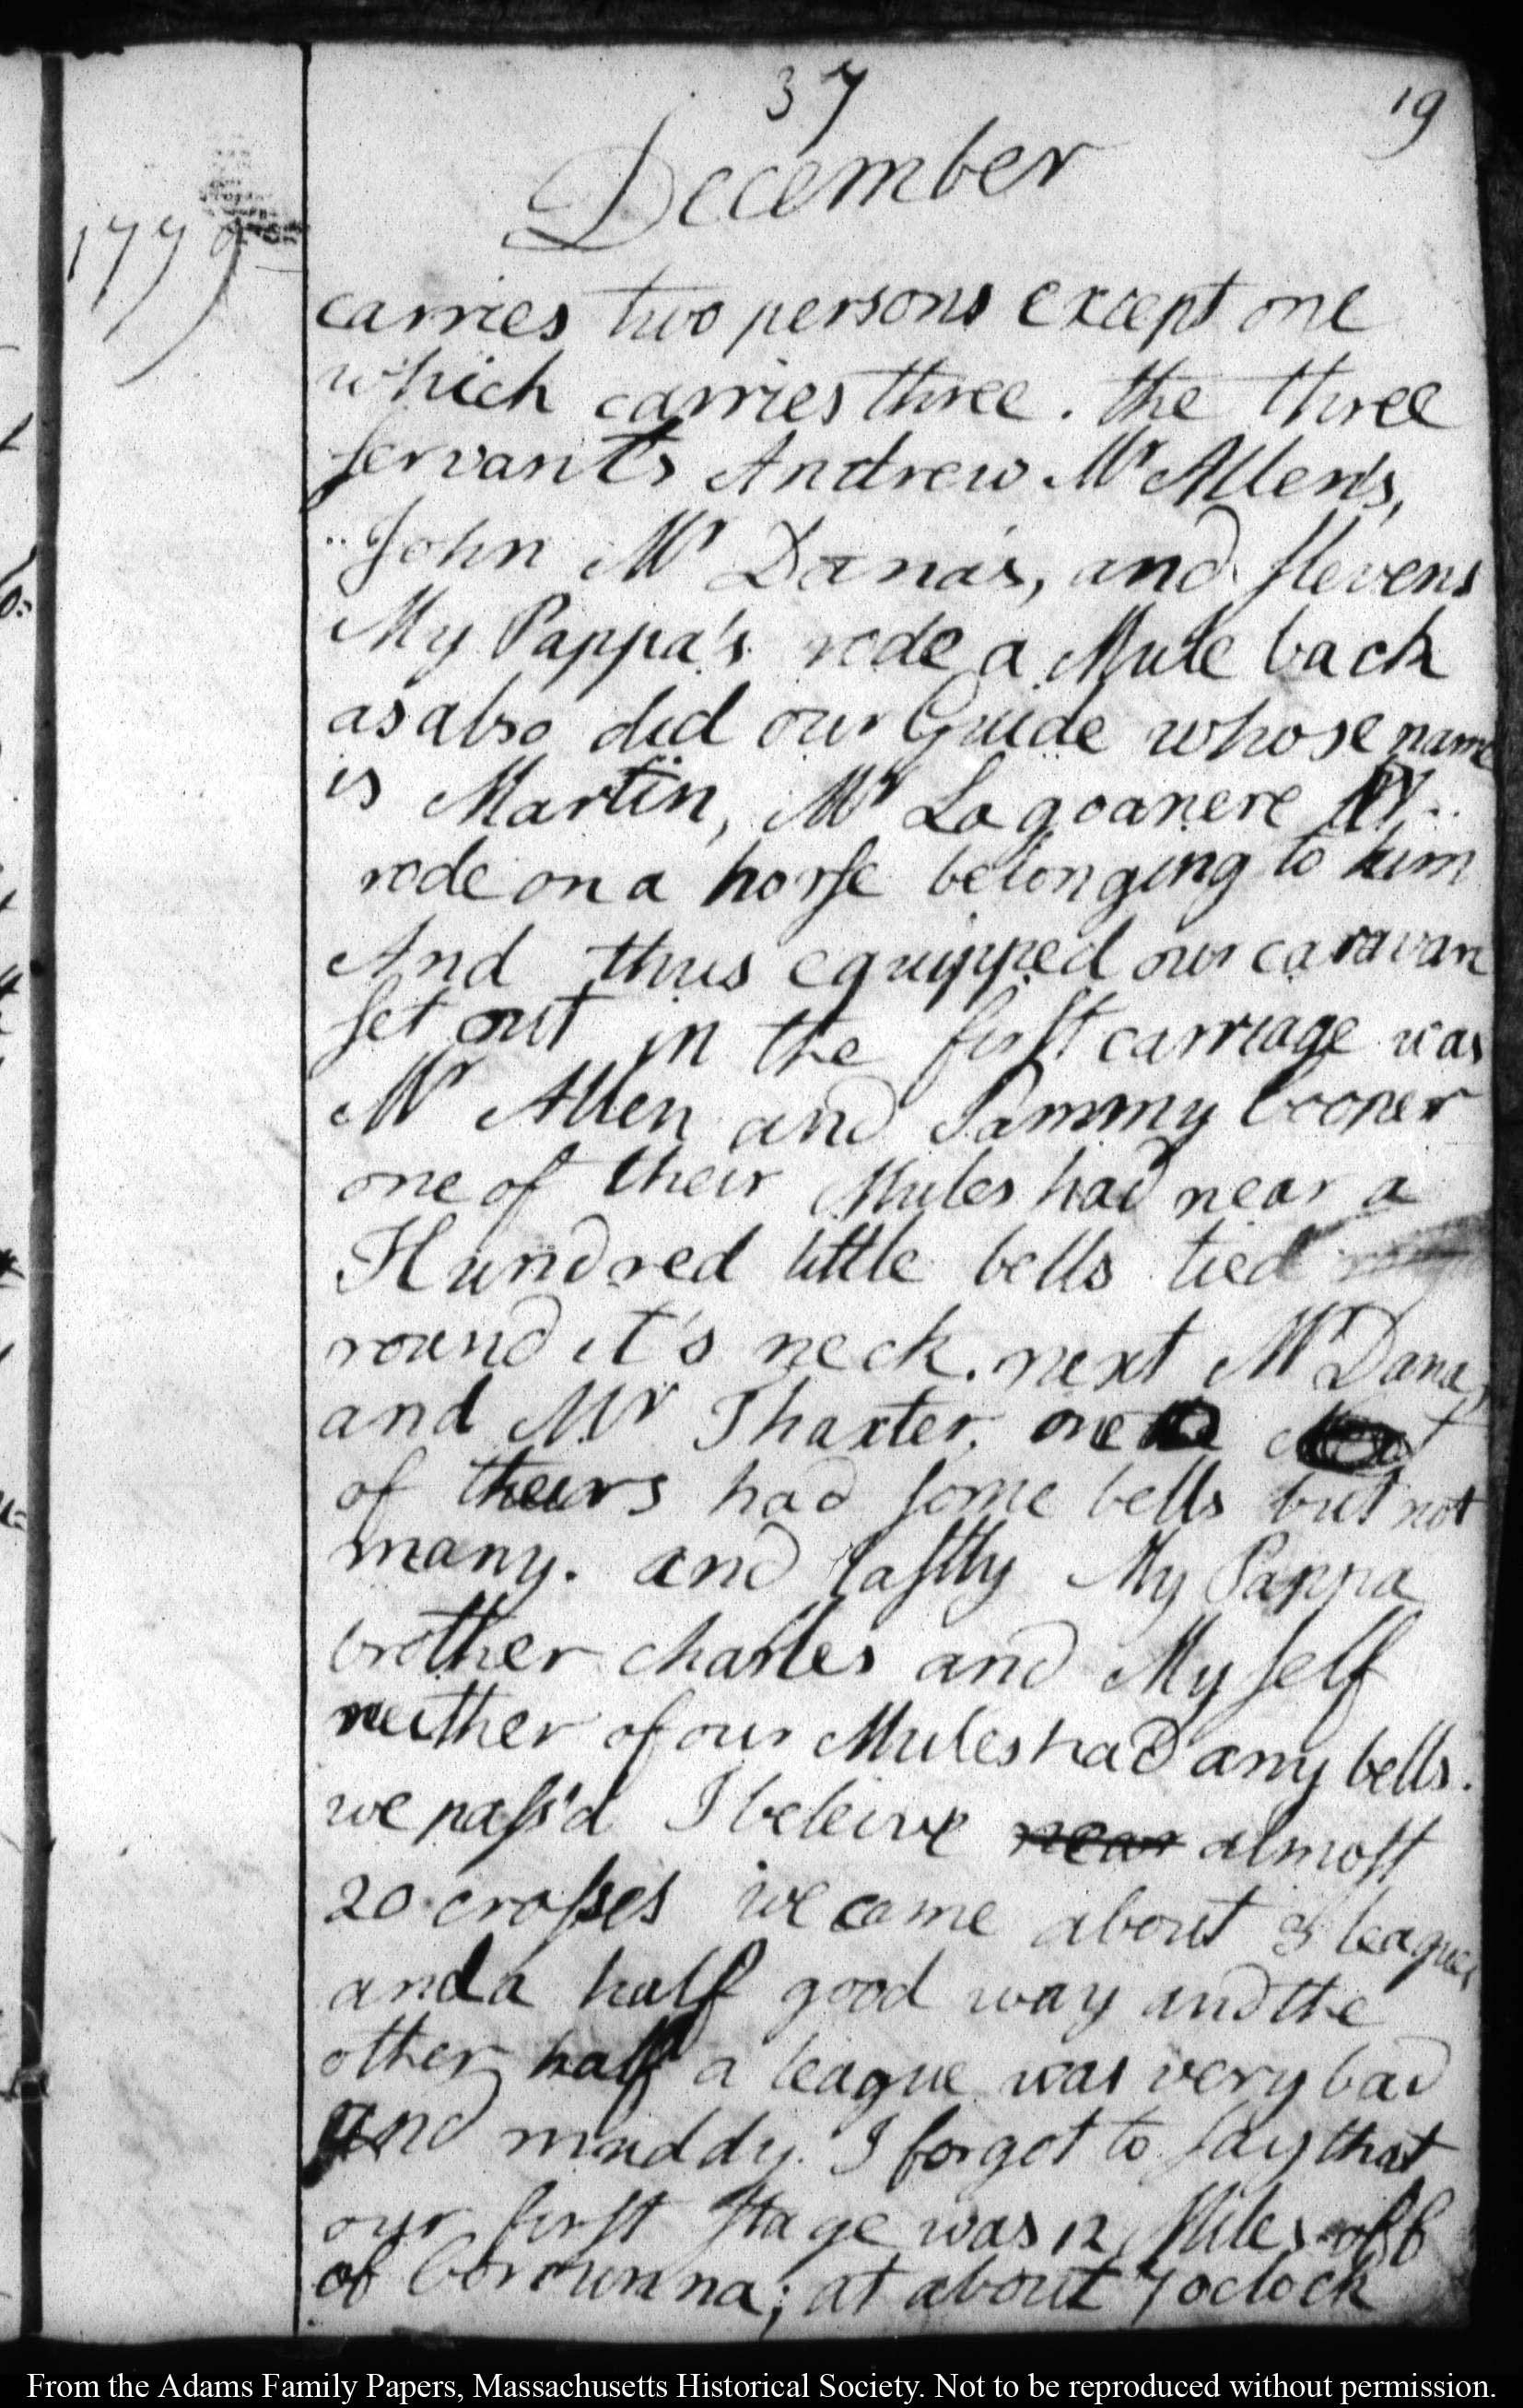 37
19
December
1779
carries two persons except one
which carries three. the three
servants Andrew Mr Allen's,
John Mr Dana's, and stevens
My Pappa's rode a Mule back
as also did our Guide whose name
is Martin, Mr Lagoanere
rode on a horse belonging to him
And thus equipped our caravan
set out in the first carriage was
Mr Allen and Sammy Cooper
one of their Mules had near a
Hundred little bells tied
round it's neck. next Mr Dana,
and Mr Thaxter. one
of theirs had some bells but not
many. and lastly My Pappa
brother charles and Myself
neither of our Mules had any bells.
we pass'd I beleive near almost
20 crosses we came about 3 leagues
and a half good way and the
other half a league was very bad
and muddy. I forgot to say that
our first stage was 12 Miles off
of Corounna; at about 7 oclock
From the Adams Family Papers, Massachusetts Historical Society. Not to be reproduced without permission.